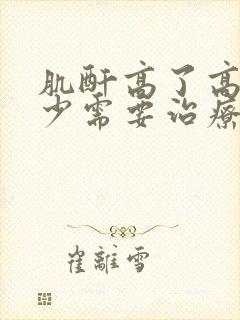 肌酐高了高
少需要治療
崔離雪